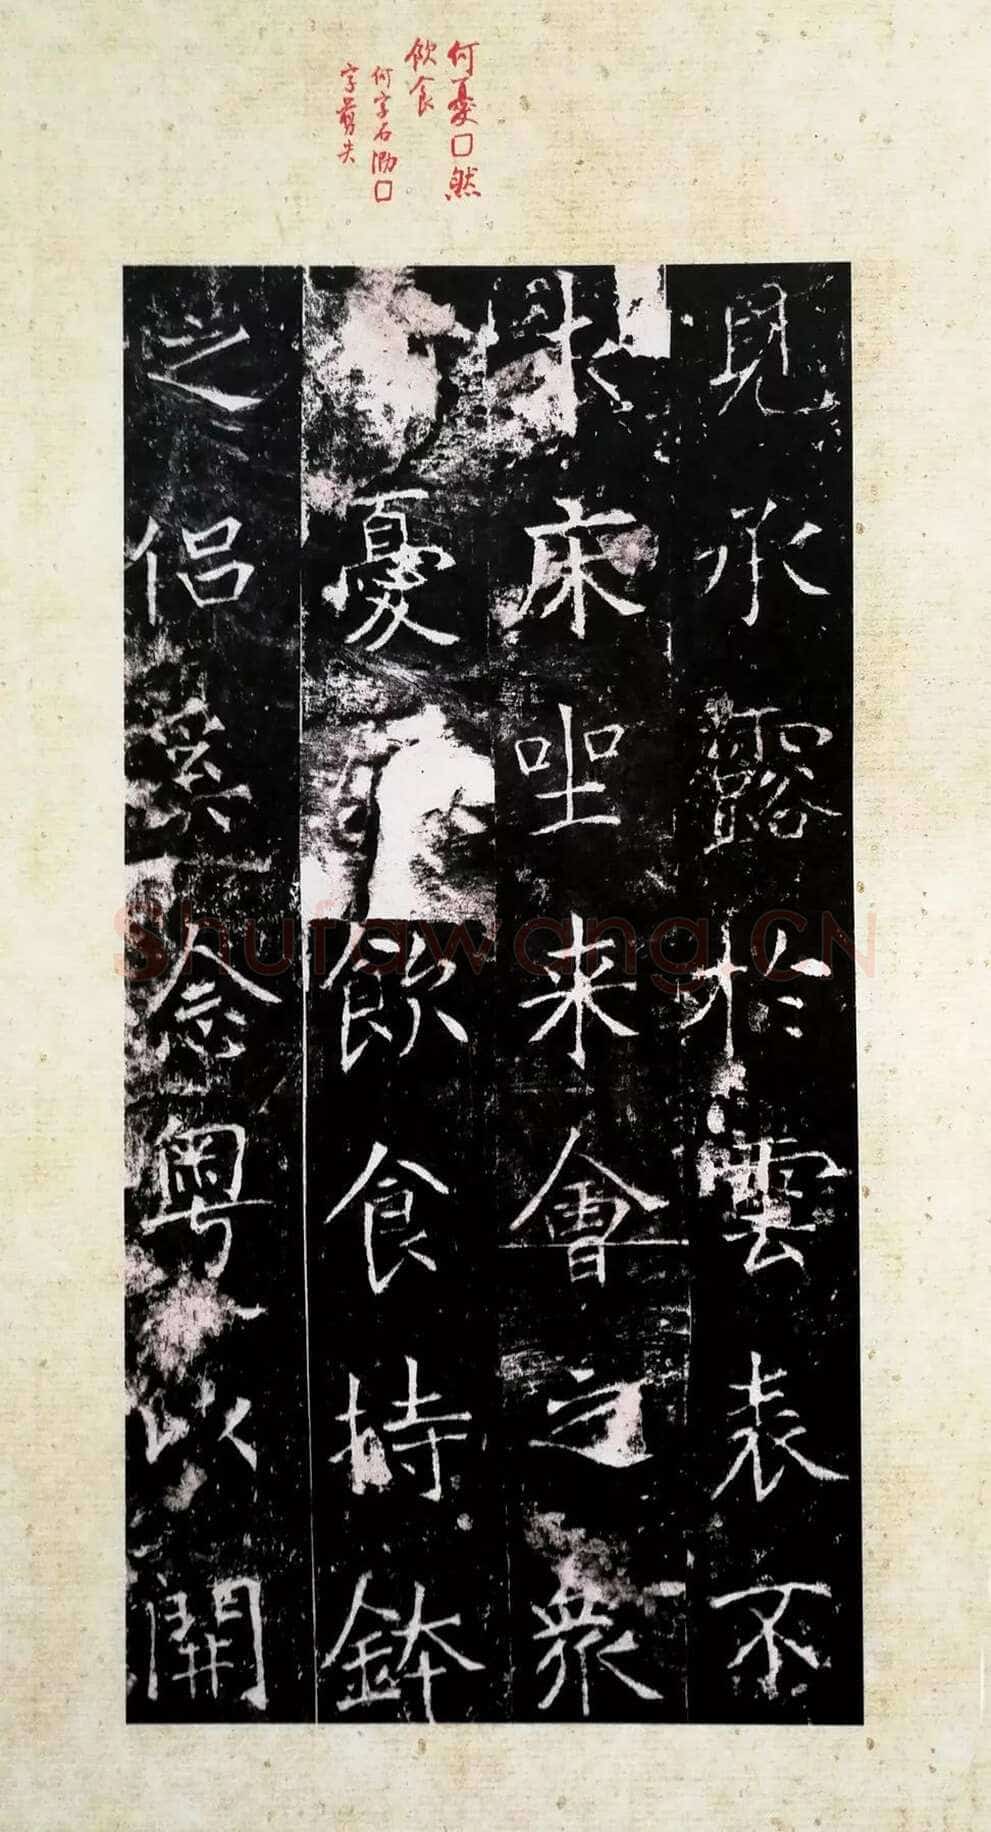 何憂□然
飲食
何字石泐□
字剪失
見承露於雲表不
床坐来會之衆
憂飲食持鉢
之侶奚念粵以開
Shufawang.CN